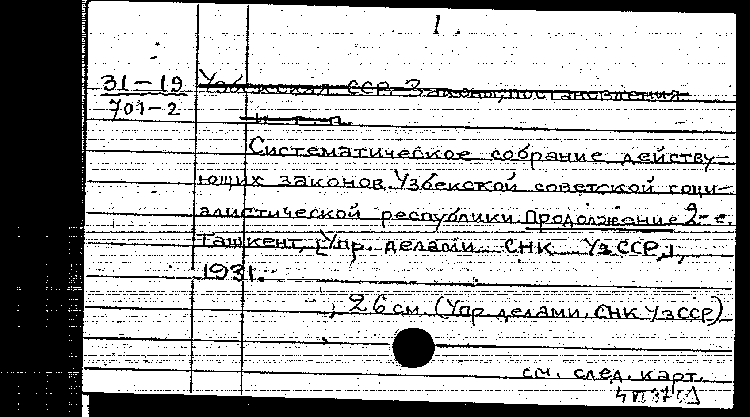 1.
31-19
701-2
Узбекская ССР. Законы, постановления
и т. п.
Систематическое собрание действу-
ющих законов Узбекской советской соци-
алистической республики. Продолжение 2-е.
Ташкент, [Упр. делами СНК УзССР],
1931.
; 26 см. (Упр делами СНК УзССР)
см. след. карт.